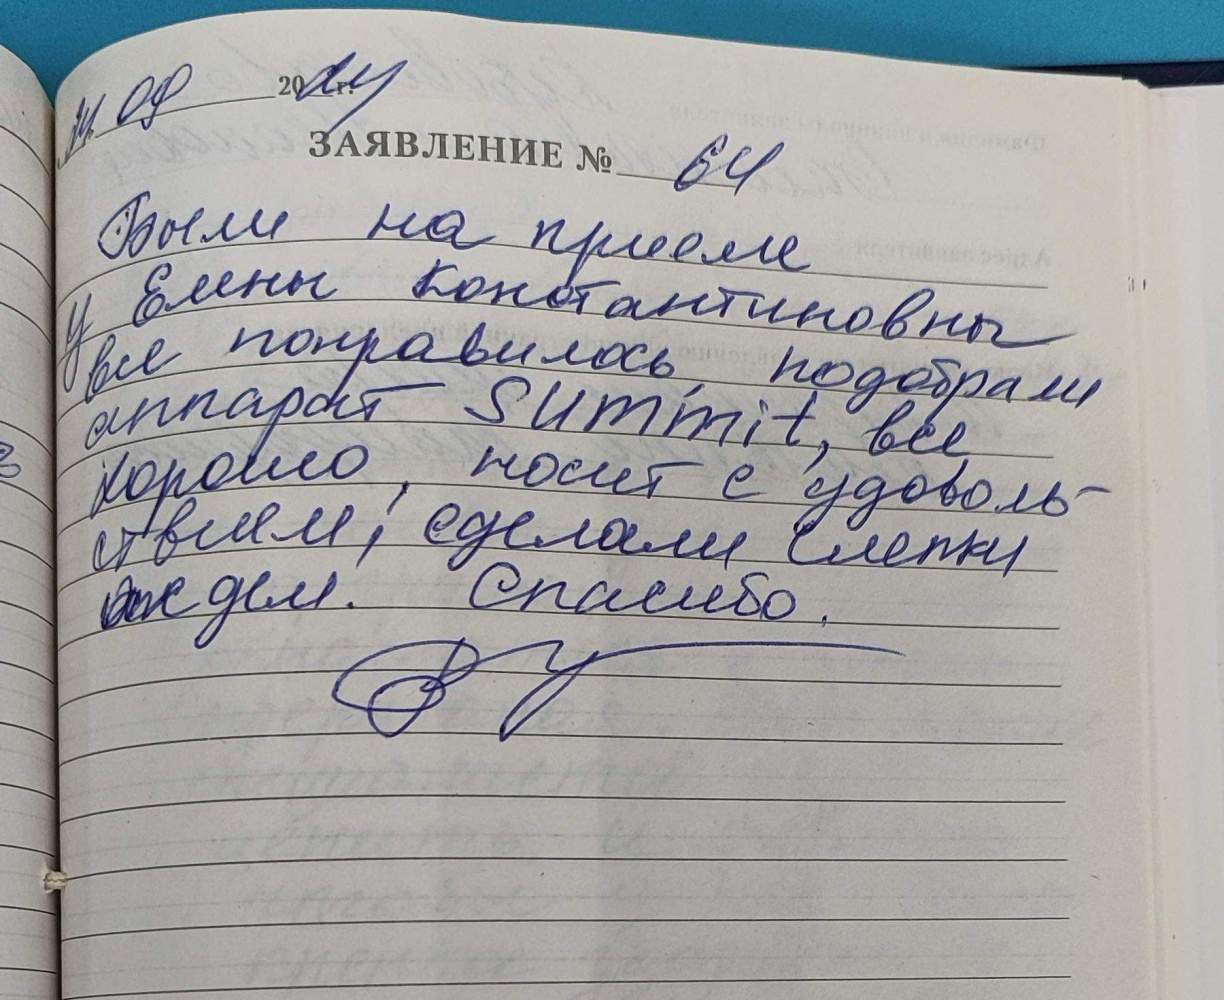 24. 09 2024 г.
ЗАЯВЛЕНИЕ № 64
Были на приеме
у Елены Константиновны
все понравилось, подобрали
аппарат Summit, все
хорошо, носит с удоволь-
ствием, сделали слепки
ждем. Спасибо.